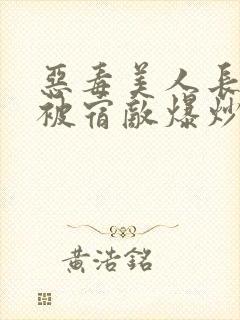 惡毒美人長
被宿敵爆炒
黃浩銘